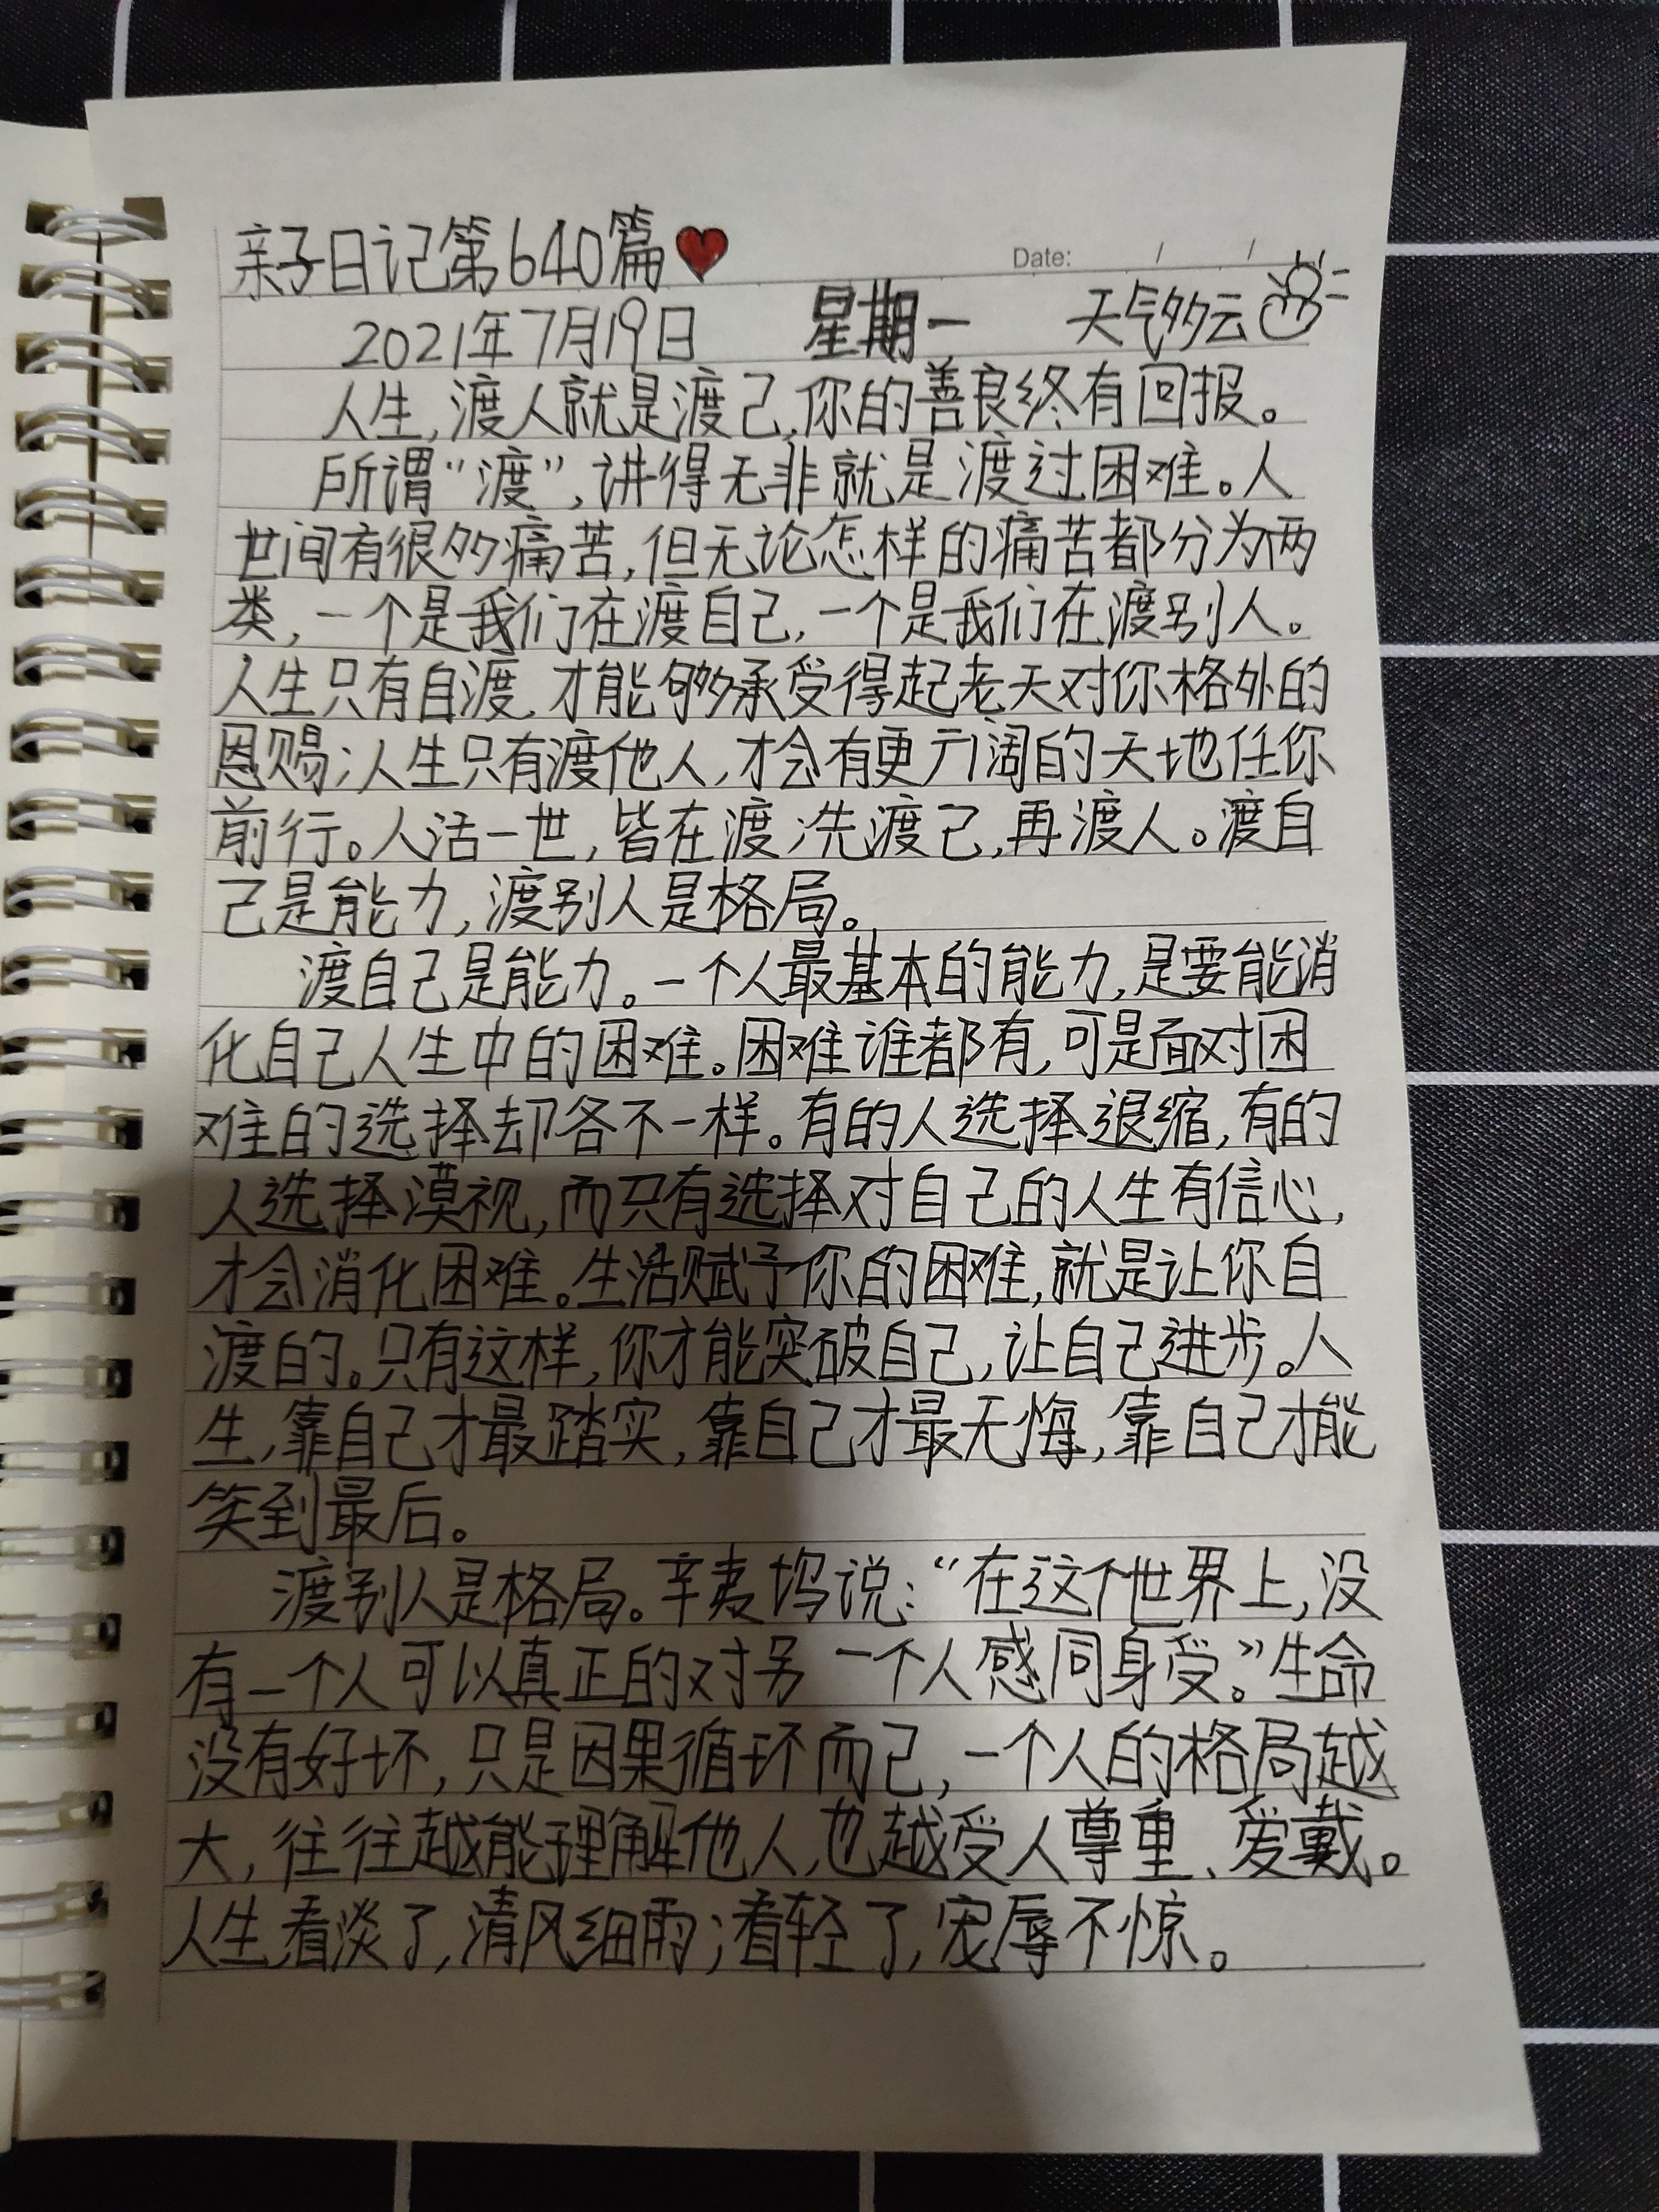 亲子日记第640篇
Date: / /
2021年7月19日 星期一 天气多云
人生,渡人就是渡己,你的善良终有回报。
所谓“渡”,讲得无非就是渡过困难。人
世间有很多痛苦,但无论怎样的痛苦都分为两
类,一个是我们在渡自己,一个是我们在渡别人。
人生只有自渡,才能够承受得起老天对你格外的
恩赐;人生只有渡他人,才会有更广阔的天地任你
前行。人活一世,皆在渡;先渡己,再渡人。渡自
己是能力,渡别人是格局。
渡自己是能力。一个人最基本的能力,是要能消
化自己人生中的困难。困难谁都有,可是面对困
难的选择却各不一样。有的人选择退缩,有的
人选择漠视,而只有选择对自己的人生有信心,
才会消化困难。生活赋予你的困难,就是让你自
渡的。只有这样,你才能突破自己,让自己进步。人
生,靠自己才最踏实,靠自己才最无悔,靠自己才能
笑到最后。
渡别人是格局。辛夷坞说:“在这个世界上,没
有一个人可以真正的对另一个人感同身受。”生命
没有好坏,只是因果循环而己,一个人的格局越
大,往往越能理解他人,也越受人尊重、爱戴。
人生看淡了,清风细雨;看轻了,宠辱不惊。